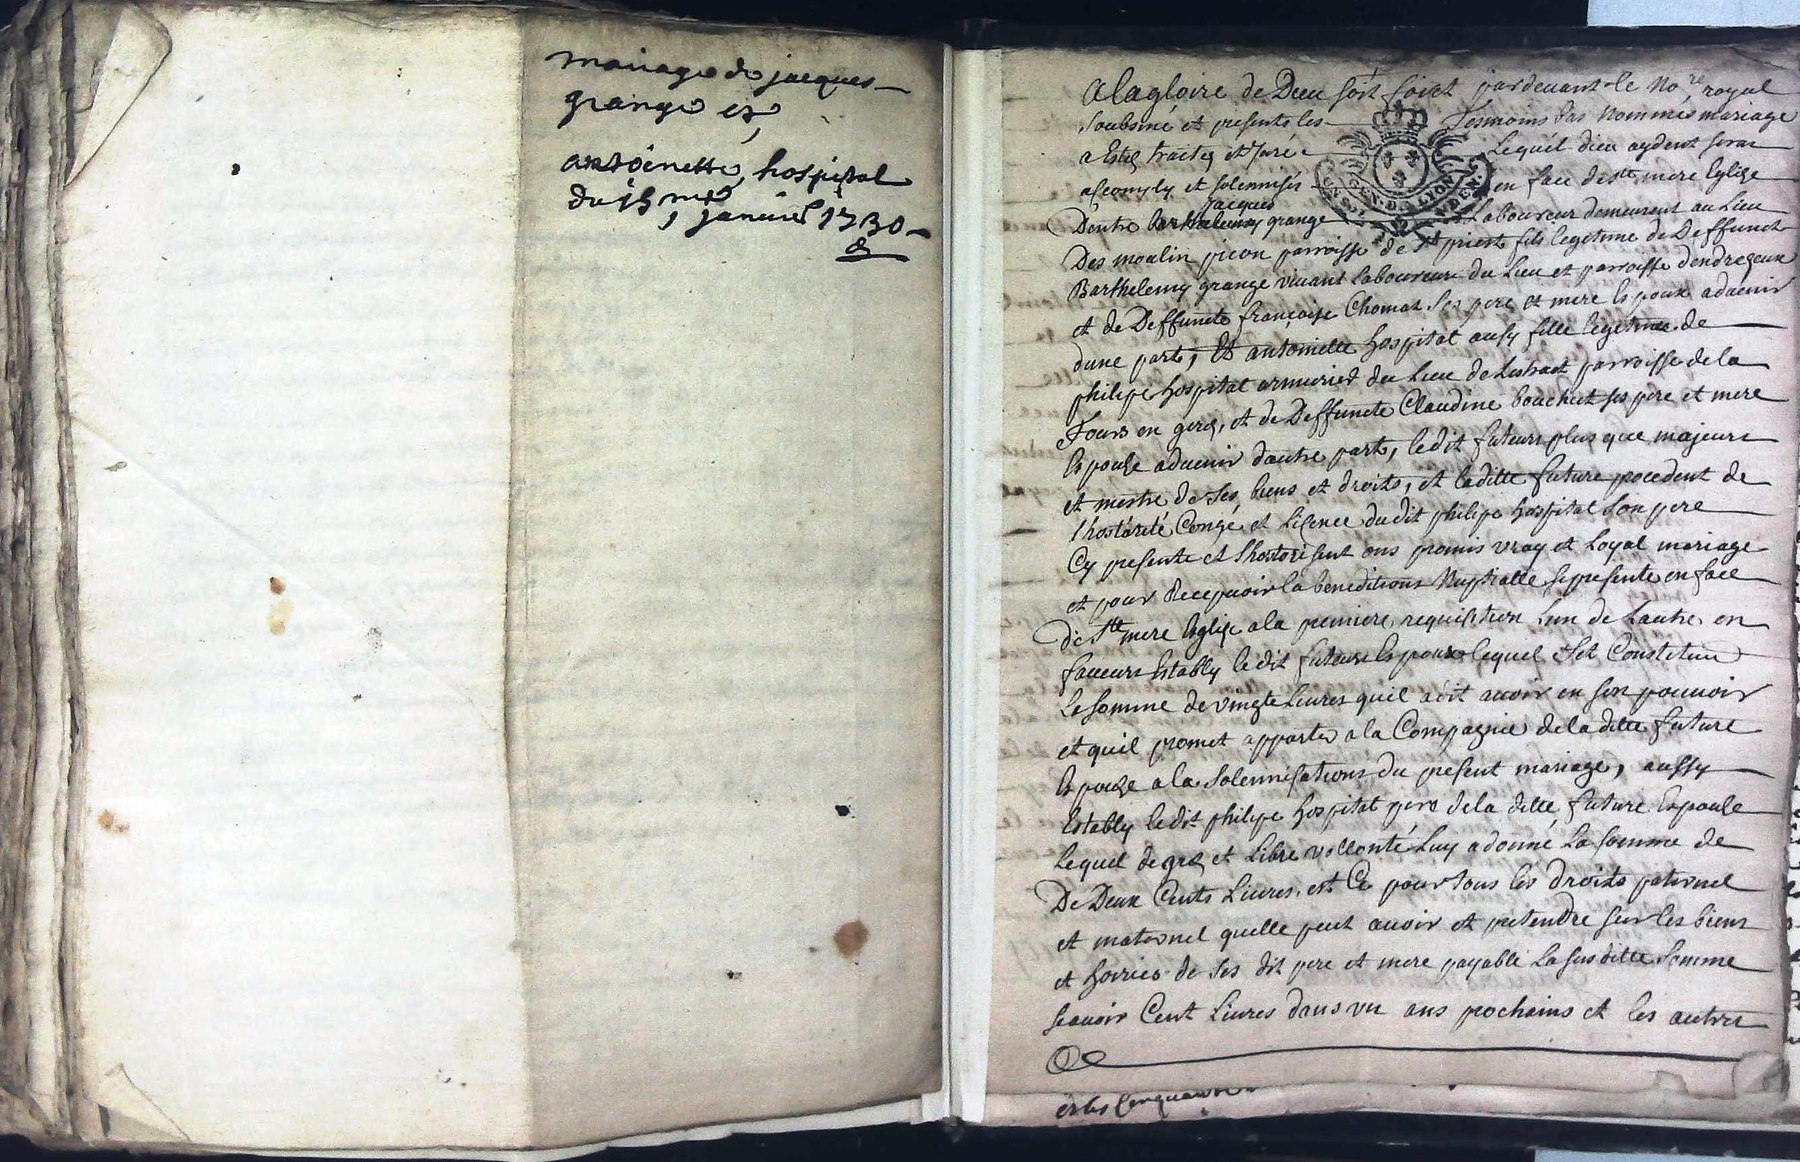 mariage de jacques
grange et
antoinette hospital
du 15me janvier 1730
A la gloire de Dieu soit soict pardevant le No.re royal
soubsiné et presents les tesmoins bas nommés mariage
a Esté traité et Juré Lequel dieu aydent seras
acComply et solennisés en face de ste mere Eglize
jacques
D'entre barthelemy grange Laboureur demeurent au Lieu
Des moulin picon parroisse de st priest fils legetime de Deffunct
Barthelemy grange vivant laboureur du Lieu et parroisse dendrezieux
et de Deffuncte françoise Chomat ses pere et mere Espoux advenir
dune part, Et antoinette hospital ausy fille legetime de
philipe hospital armurier du Lieu de Lestract parroisse de la
Tours en gerez, et de Deffuncte Claudine bouchet ses pere et mere
Espouze advenir dautre part, ledit futeurs plus que majeurs
et mestre de ses biens et droits, et laditte future procedent de
lhostorité Congé et Licence dudit philipe hospital son pere
Cy presente et lhostorisent ons promis vray et Loyal mariage
et pour Recepvoir la beneditions Nuptialle se presente en face
de Ste mere Eglize a la premiere requisition Lun de Lautre en
faveurs Estably ledit futeurs Espoux lequel sest Constitué
La somme de vingte Livres quil a dit avoir en son pouvoir
et quil promet apporter a la Compagnie de la ditte future
Espouze a la solennisations du present mariage, aussy
Estably ledit philipe hospital pere de la ditte future Espouse
Lequel de gré et Libre vollonté Luy a donné La somme de
De Deux Cents Livres, est Ce pour tous les droits paternel
et maternel quelle peut avoir et pretendre sur les biens
et hoiries de ses dit pere et mere payable La susditte somme
scavoir Cent Livres dans un ans prochains et les autres